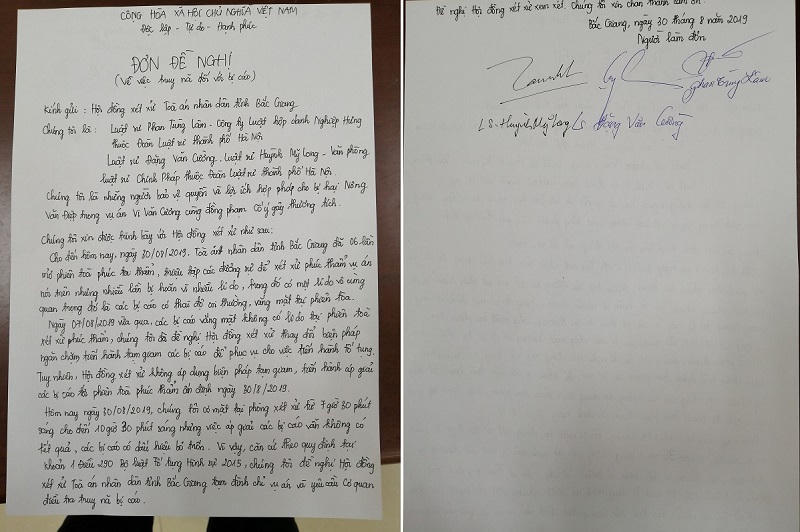 CỘNG HÒA XÃ HỘI CHỦ NGHĨA VIỆT NAM
Độc lập - Tự do - Hạnh phúc
ĐƠN ĐỀ NGHỊ
(Về việc truy nã đối với bị cáo)
Kính gửi: Hội đồng xét xử Toà án nhân dân tỉnh Bắc Giang
Chúng tôi là: Luật sư Phan Tùng Lâm - Công ty Luật hợp danh Nghiệp Hưng
thuộc Đoàn Luật sư thành phố Hà Nội
Luật sư Đặng Văn Cường, Luật sư Huỳnh Mỹ Long - Văn phòng
luật sư Chính Pháp thuộc Đoàn Luật sư thành phố Hà Nội
Chúng tôi là những người bảo vệ quyền và lợi ích hợp pháp cho bị hại Nông
Văn Điệp trong vụ án Vi Văn Cương cùng đồng phạm Cố ý gây thương tích.
Chúng tôi xin được trình bày với Hội đồng xét xử như sau:
Cho đến hôm nay, ngày 30/08/2019. Toà án nhân dân tỉnh Bắc Giang đã 06 lần
mở phiên toà phúc tra thẩm, triệu tập các đương sự để xét xử phúc thẩm vụ án
nói trên nhưng nhiều lần bị hoãn vì nhiều lí do, trong đó có một lí do vô cùng
quan trọng đó là các bị cáo có thái độ coi thường, vắng mặt tại phiên tòa.
Ngày 07/08/2019 vừa qua, các bị cáo vắng mặt không có lí do tại phiên toà
xét xử phúc thẩm, chúng tôi đã đề nghị Hội đồng xét xử thay đổi biện pháp
ngăn chặn tiến hành tạm giam các bị cáo để phục vụ cho việc tiến hành tố tụng.
Tuy nhiên, Hội đồng xét xử không áp dụng biện pháp tạm giam, tiến hành áp giải
các bị cáo tới phiên toà phúc thẩm ấn định ngày 30/8/2019.
Hôm nay ngày 30/08/2019, chúng tôi có mặt tại phòng xét xử từ 7 giờ 30 phút
sáng cho đến 10 giờ 30 phút sáng nhưng việc áp giải các bị cáo vẫn không có
kết quả, các bị cáo có dấu hiệu bỏ trốn. Vì vậy, căn cứ theo quy định tại
khoản 1 Điều 290 Bộ luật Tố tụng Hình sự 2015, chúng tôi đề nghị Hội đồng
xét xử Toà án nhân dân tỉnh Bắc Giang tạm đình chỉ vụ án và yêu cầu Cơ quan
điều tra truy nã bị cáo.
Đề nghị Hội đồng xét xử xem xét. Chúng tôi xin chân thành cảm ơn.
Bắc Giang, ngày 30 tháng 8 năm 2019
Người làm đơn
Phan Tùng Lâm
LS. Huỳnh Mỹ Long Ls Đặng Văn Cường